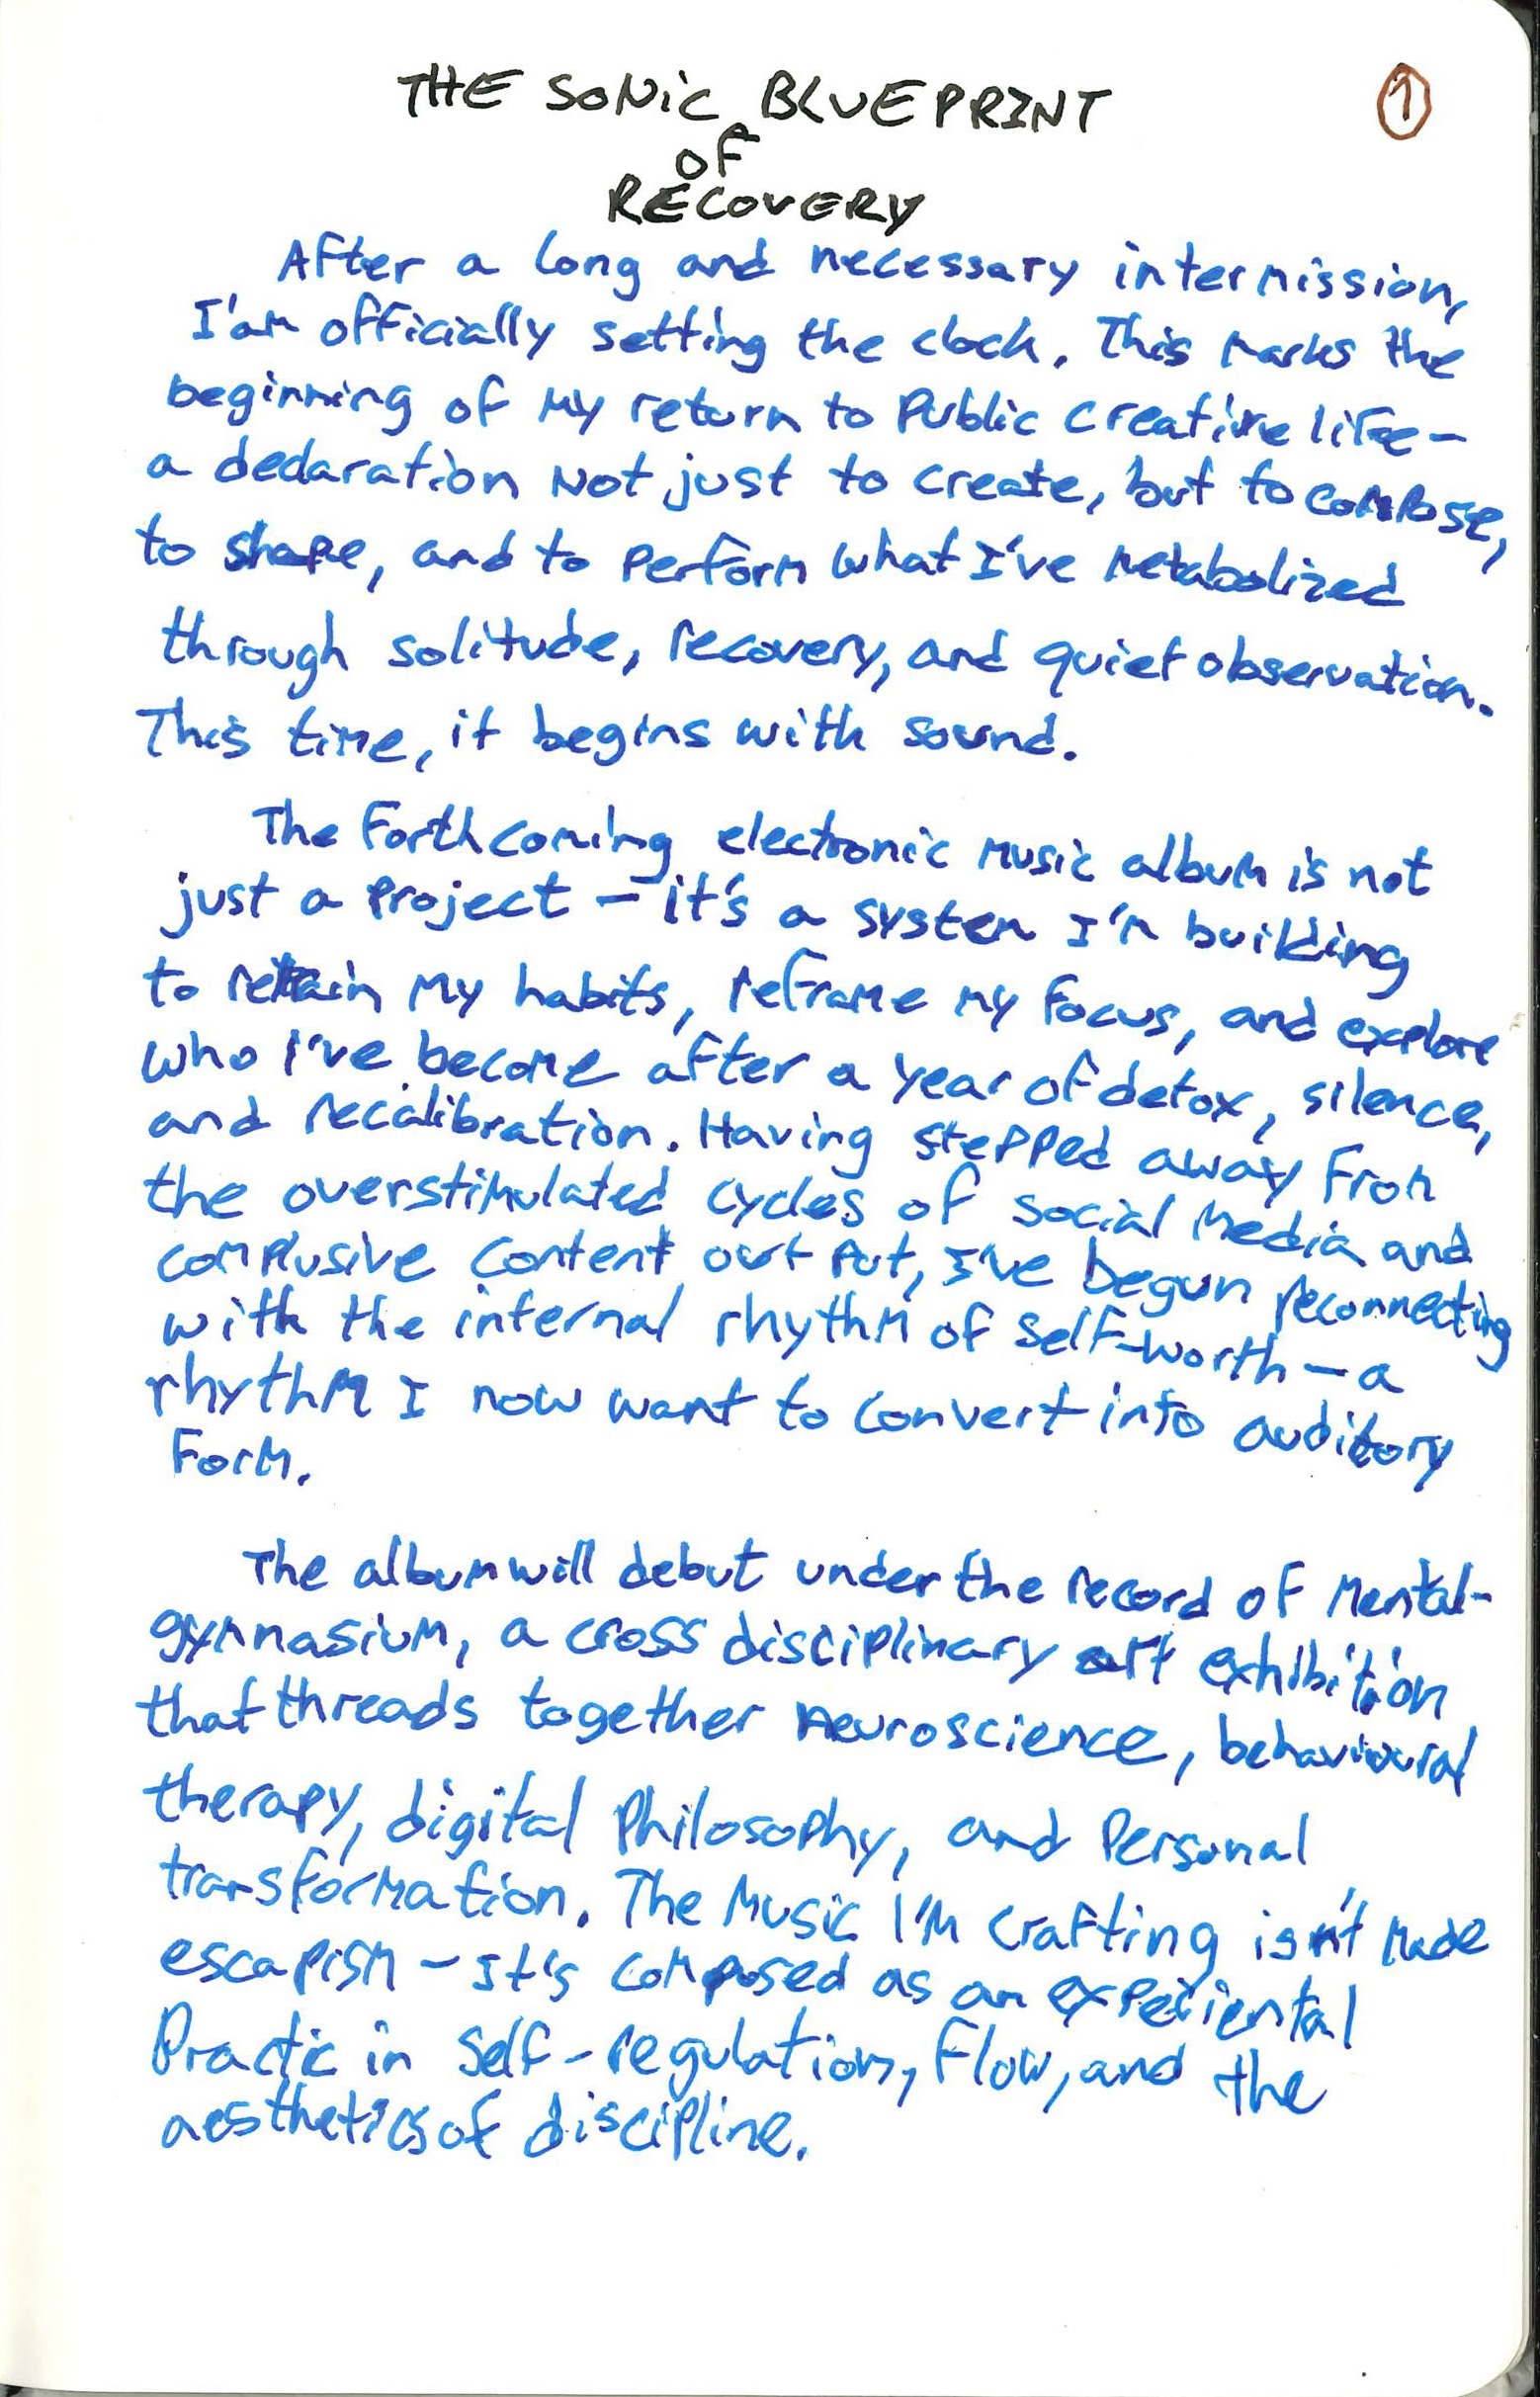 THE SONiC BLUEPRINT
①
OF
RECOVERY
After a long and necessary intermission,
I'am officially setting the clock. This marks the
beginning of my return to Public creative life-
a declaration Not just to create, but to compose,
to shape, and to perform what I've metabolized
through solitude, recovery, and quiet observation.
This time, it begins with sound.
The forthcoming electronic music album is not
just a project - it's a system I'm building
to retrain my habits, reframe my focus, and explore
who I've become after a year of detox, silence,
and recalibration. Having stepped away from
the overstimulated cycles of social media and
complusive content out put, I've begun reconnecting
with the internal rhythm of self-worth - a
rhythm I now want to convert into auditory
Form.
The album will debut under the record of Mental-
gymnasium, a cross disciplinary art exhibition
that threads together neuroscience, behavioural
therapy, digital Philosophy, and Personal
transformation. The Music I'm crafting isn't made
escapism - It's composed as an expeciental
Practic in self-regulation, Flow, and the
aesthetics of discipline.